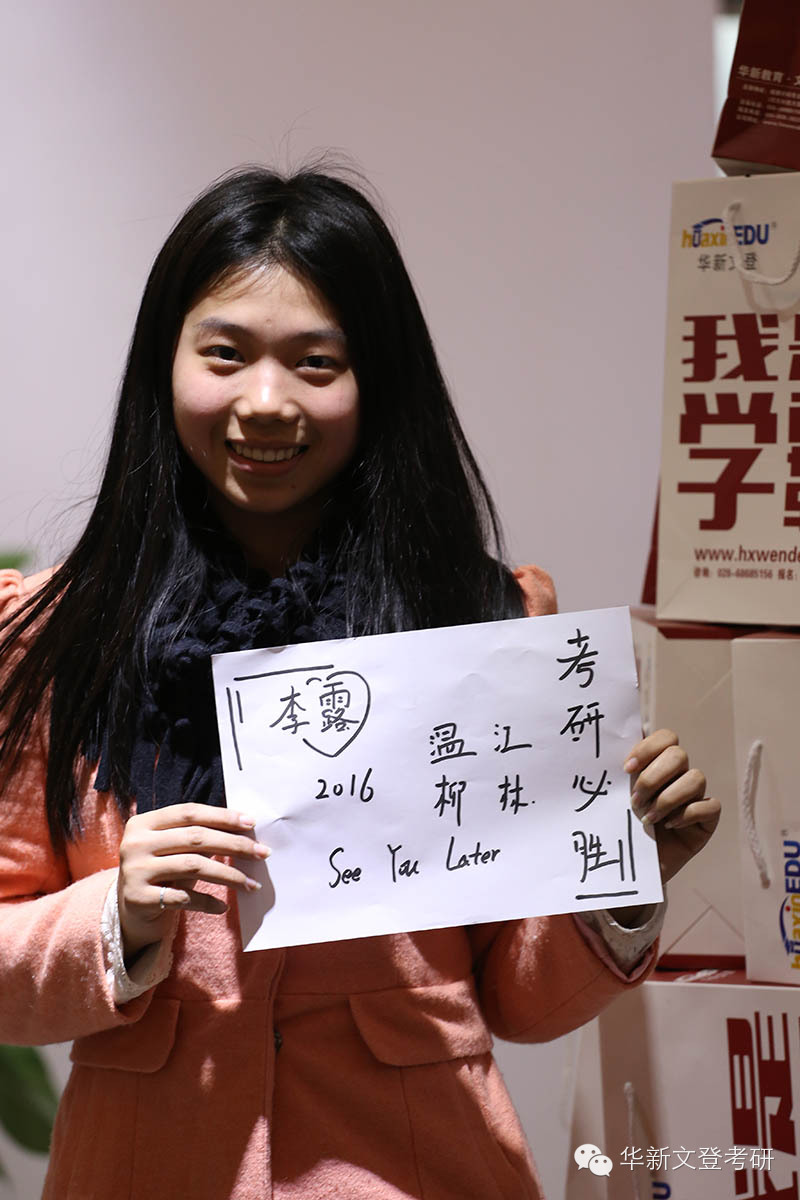 李露
2016
温江
柳林
See You Later
考研必胜
华新教育·文
huaxinEDU
华新文登
我是
学
子
www.hxwende
咨询：028-68685156 报名：
huaxinEDU
华新文登考研